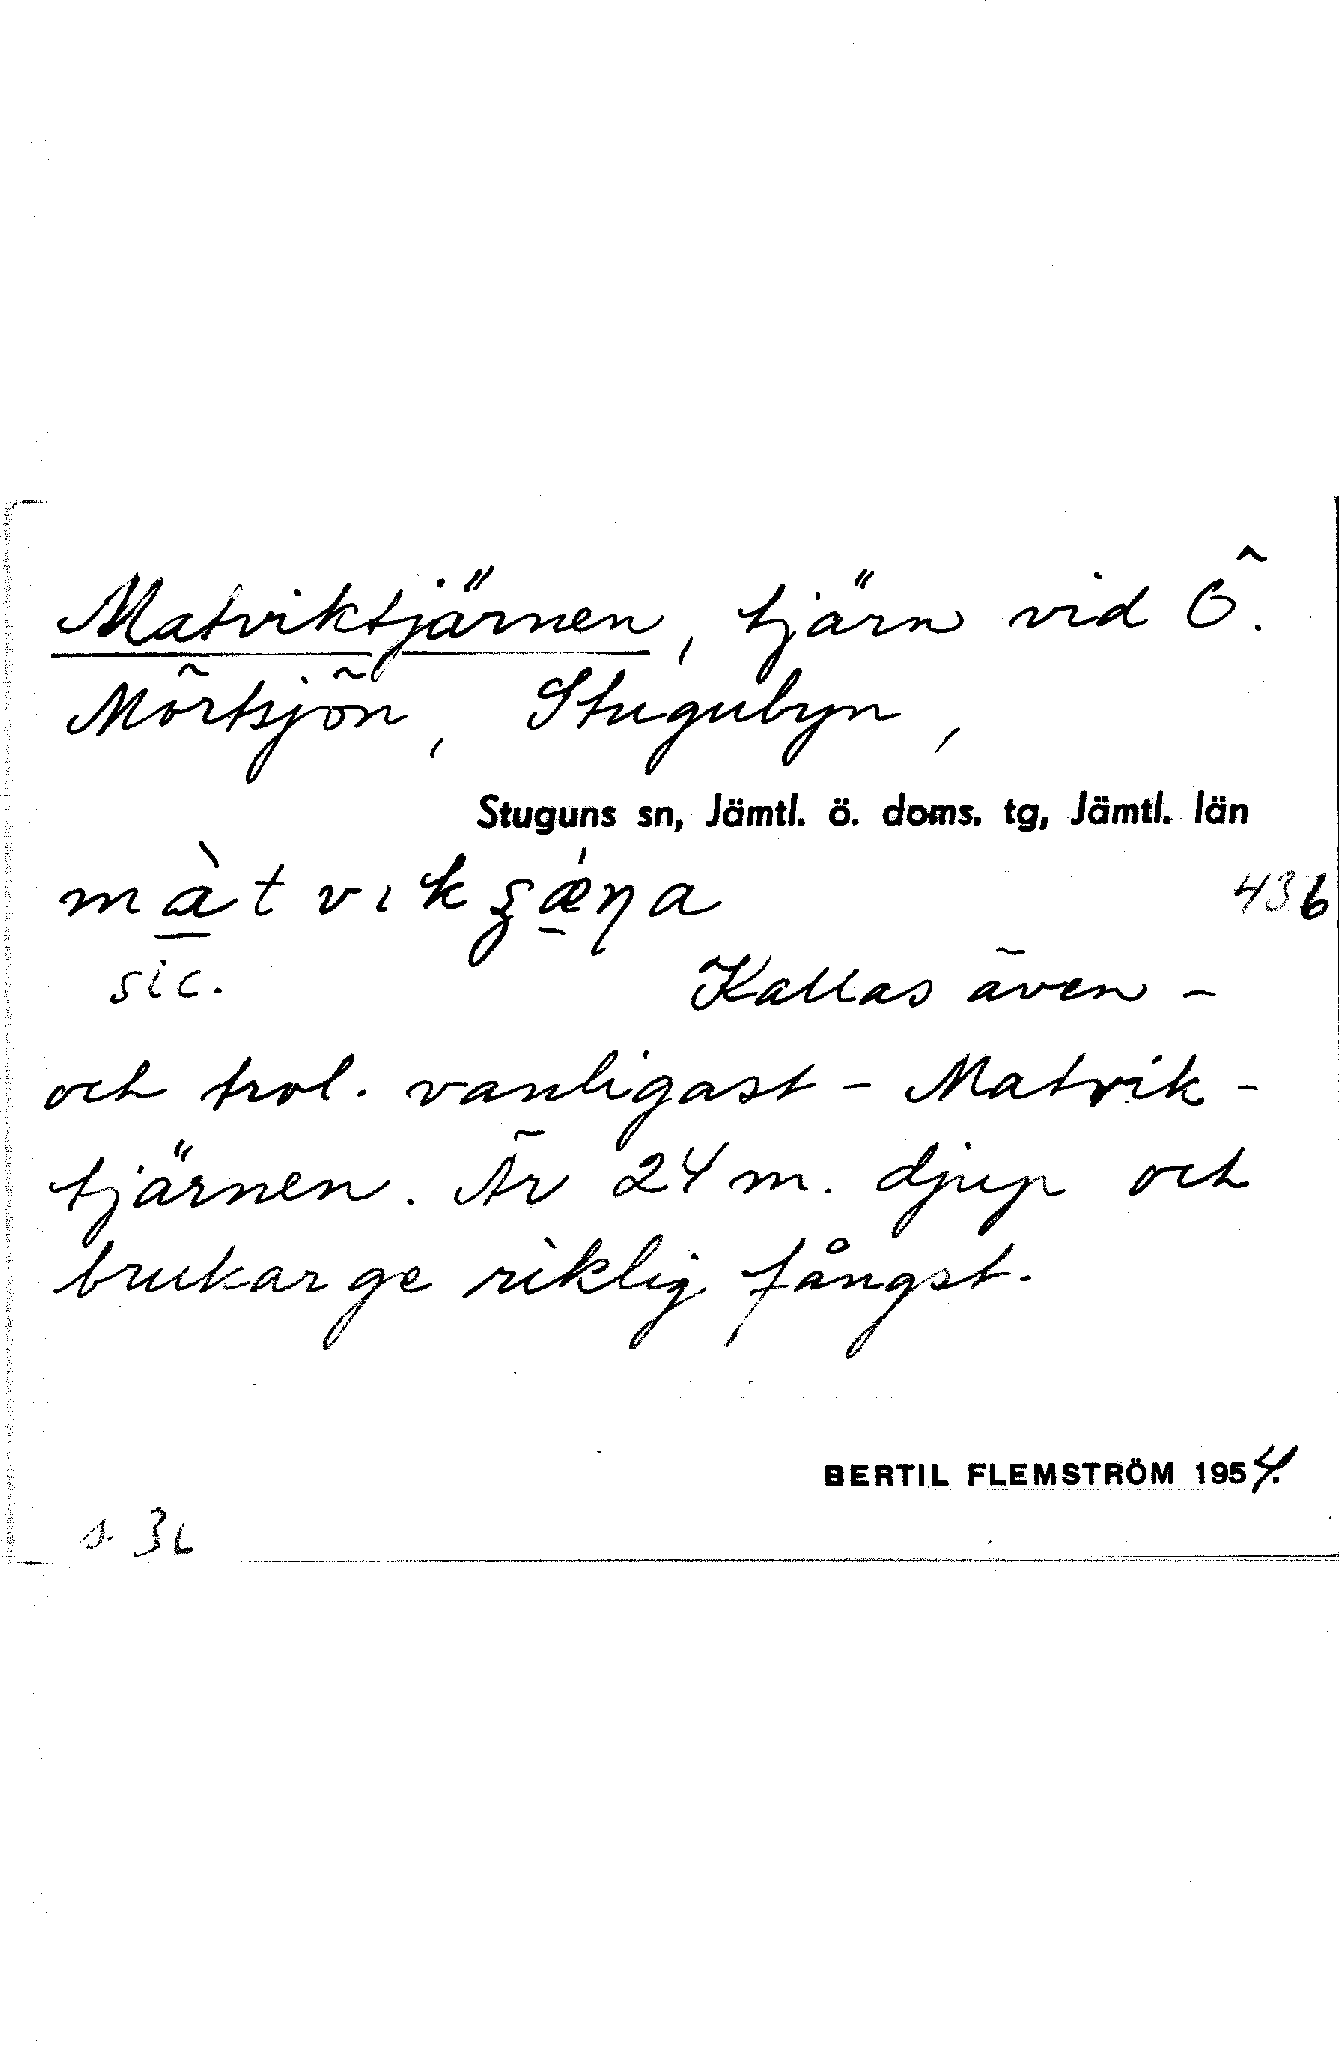 Matviktjärnen, tjärn vid Ö.
Mörtsjön, Stugubyn,
Stuguns sn, Jämtl. ö. doms. tg, Jämtl. län
436
sic. Kallas även -
och trol. vanligast - Matvik-
tjärnen. Är 24 m. djup och
brukar ge riklig fångst.
BERTIL FLEMSTRÖM 1954.